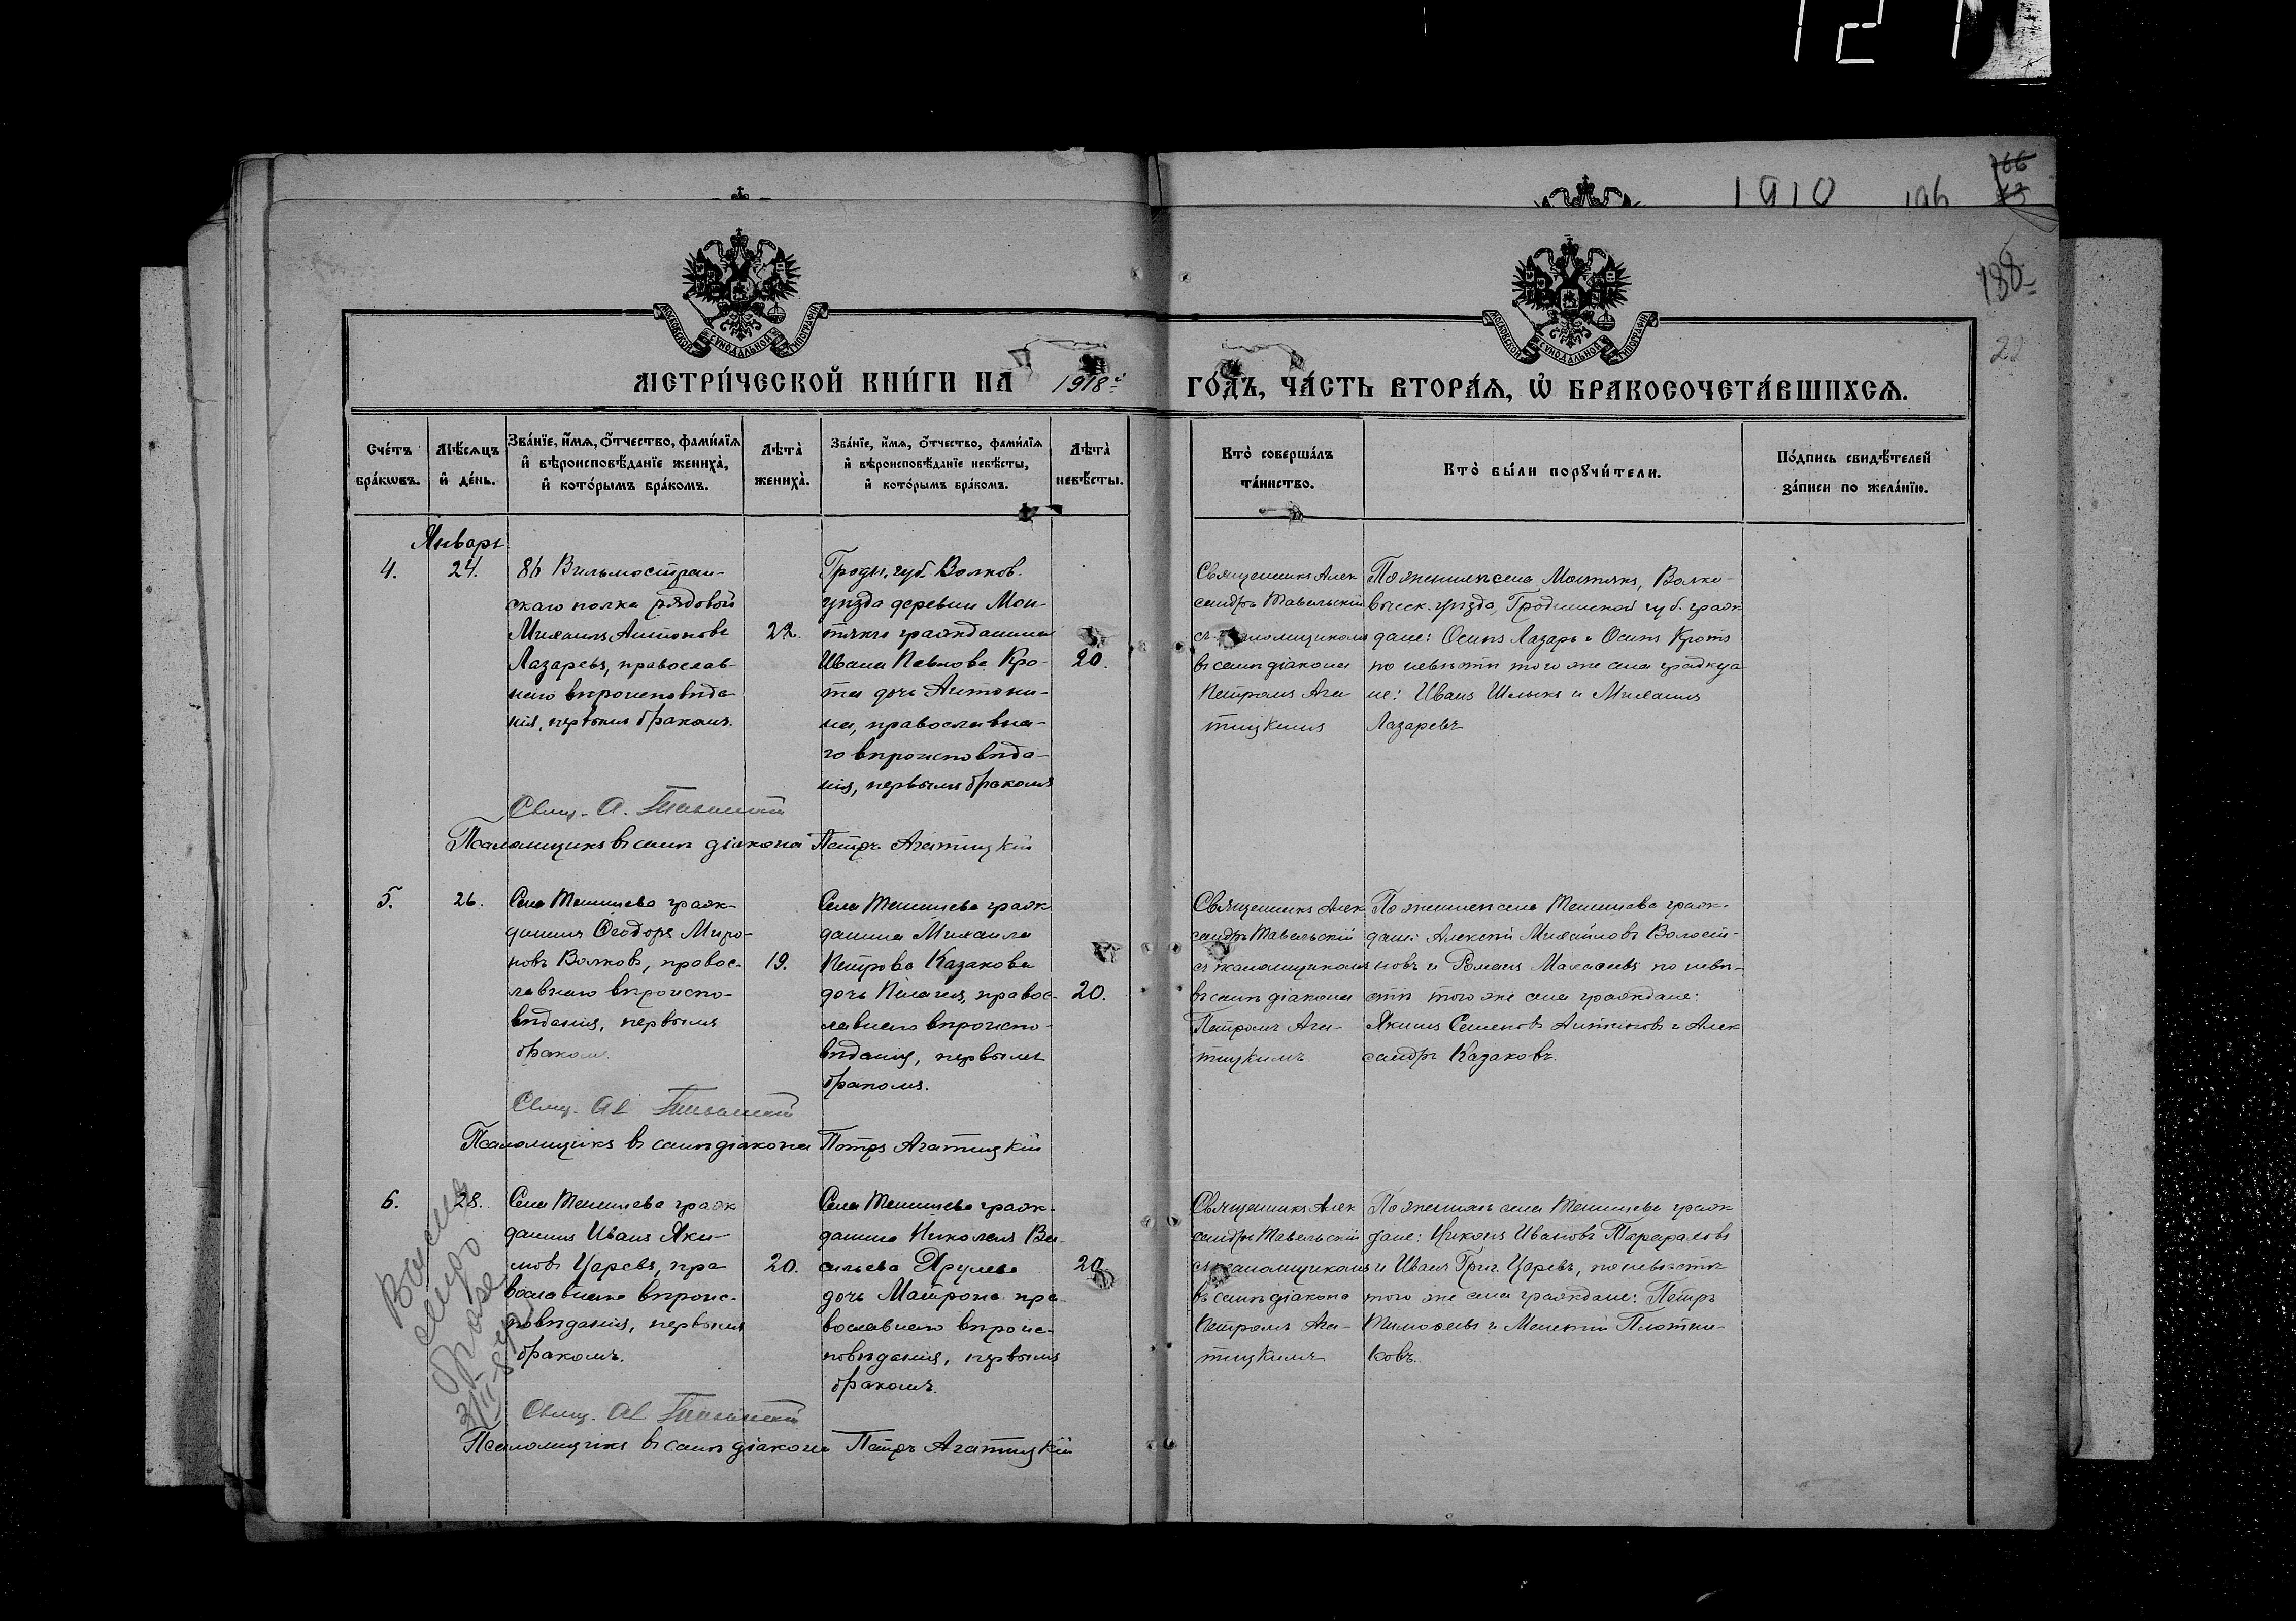 121
1910 196
188
22
МОСКОВСКОЙ СУНОДАЛЬНОЙ ТИПОГРАФІИ
МОСКОВСКОЙ СУНОДАЛЬНОЙ ТИПОГРАФІИ
МЕТРИ́ЧЕСКОЙ КНИ́ГИ НА 1918й ГО́ДЪ, ЧА́СТЬ ВТОРА́Я, Ѡ БРАКОСОЧЕТА́ВШИХСЯ.
Сче́тъ
бра́кѡвъ.
Мѣ́сяцъ
и де́нь.
Зва́нїе, и́мя, о́тчество, фами́лїя
и вѣроисповѣ́данїе жениха̀,
и кото́рымъ бра́комъ.
Лѣ́та
жениха̀.
Зва́нїе, и́мя, о́тчество, фами́лїя
и вѣроисповѣ́данїе невѣ́сты,
и кото́рымъ бра́комъ.
Лѣ́та
невѣ́сты.
Кто̀ соверша́лъ
та́инство.
Кто̀ бы́ли порꙋчи́тели.
По́дпись свидѣ́телей
за́писи по жела́нїю.
Январь
4.
24.
86 Вильмостран-
скаго полка рядовой
Михаилъ Антоновъ
Лазаревъ, православ-
наго вѣроисповѣда
нія, первымъ бракомъ.
22.
Гродн. губ. Волков.
уѣзда деревни Мон-
тяки гражданина
Ивана Павлова Кро-
та дочь Антони-
на, православна-
го вѣроисповѣда-
нія, первымъ бракомъ
20.
Священникъ Алек
сандръ Тавельскій
съ псаломщикомъ
въ санѣ діакона
Петромъ Ага
тицкимъ
По женихѣ села Монтяки, Волко-
выск. уѣзда, Гродненской губ. граж
дане: Осипъ Лазарь и Осипъ Кротъ
по невѣстѣ того же села гражда
не: Иванъ Шлыкъ и Михаилъ
Лазаревъ
Свящ. А. Тавельскій
Псаломщикъ въ санѣ діакона Петръ Агатицкій
5.
26.
Села Тенишева граж-
данинъ Ѳеодоръ Миро-
новъ Волковъ, правос-
лавнаго вѣроиспо-
вѣданія, первымъ
бракомъ.
19.
Села Тенишева граж
данина Михаила
Петрова Казакова
дочь Пелагія, правос-
лавнаго вѣроиспо-
вѣданія, первымъ
бракомъ.
20.
Священникъ Алек
сандръ Тавельскій
съ псаломщикомъ
въ санѣ діакона
Петромъ Ага-
тицкимъ
По женихѣ села Тенишева граж-
дане: Алексѣй Михайловъ Волост-
новъ и Романъ Малафеевъ по невѣ-
стѣ того же села граждане:
Якимъ Семеновъ Антиповъ и Алек
сандръ Казаковъ.
Свящ. Ал Тавельскій
Псаломщикъ въ санѣ діакона Петръ Агатицкій
6.
28.
Села Тенишева граж
данинъ Иванъ Яки-
мовъ Царевъ, пра
вославнаго вѣроис-
повѣданія, первымъ
бракомъ.
20.
Села Тенишева граж-
данина Николая Ва-
сильева Ярулева
дочь Матрона пра-
вославнаго вѣроис-
повѣданія, первымъ
бракомъ.
20
Священникъ Алек
сандръ Тавельскій
съ псаломщикомъ
въ санѣ діакона
Петромъ Ага-
тицкимъ
По женихѣ села Тенишева граж
дане: Никонъ Ивановъ
и Иванъ Григ. Царевъ, по невѣстѣ
того же села граждане: Петръ
Тимофеевъ и Плотни-
ковъ.
Свящ. Ал Тавельскій
Псаломщикъ въ санѣ діакона Петръ Агатицкій
о браке